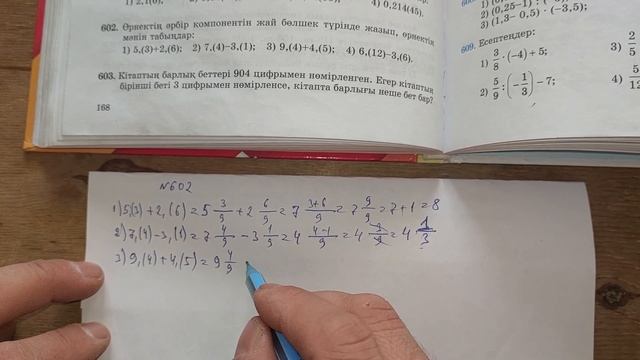 4) 0,214(45).
602. Өрнектің әрбір компонентін жай бөлшек түрінде жазып, өрнектің
мәнін табыңдар:
1) 5,(3)+2,(6); 2) 7,(4)–3,(1); 3) 9,(4)+4,(5); 4) 6,(12)–3,(6).
603. Кітаптың барлық беттері 904 цифрымен нөмірленген. Егер кітаптың
бірінші беті 3 цифрымен нөмірленсе, кітапта барлығы неше бет бар?
168
2) (0,25–1)
3) (1,3– 0,5) · (–3,5);
609. Есептеңдер:
1) 3/8 · (–4) + 5;
3) 2/5
2) 5/9 : (–1/3) – 7;
4) 5/12
N602
1) 5,(3) + 2,(6) = 5 3/9 + 2 6/9 = 7 3+6/9 = 7 9/9 = 7 + 1 = 8
2) 7,(4) – 3,(1) = 7 4/9 – 3 1/9 = 4 4–1/9 = 4 3/9 = 4 1/3
3) 9,(4) + 4,(5) = 9 4/9